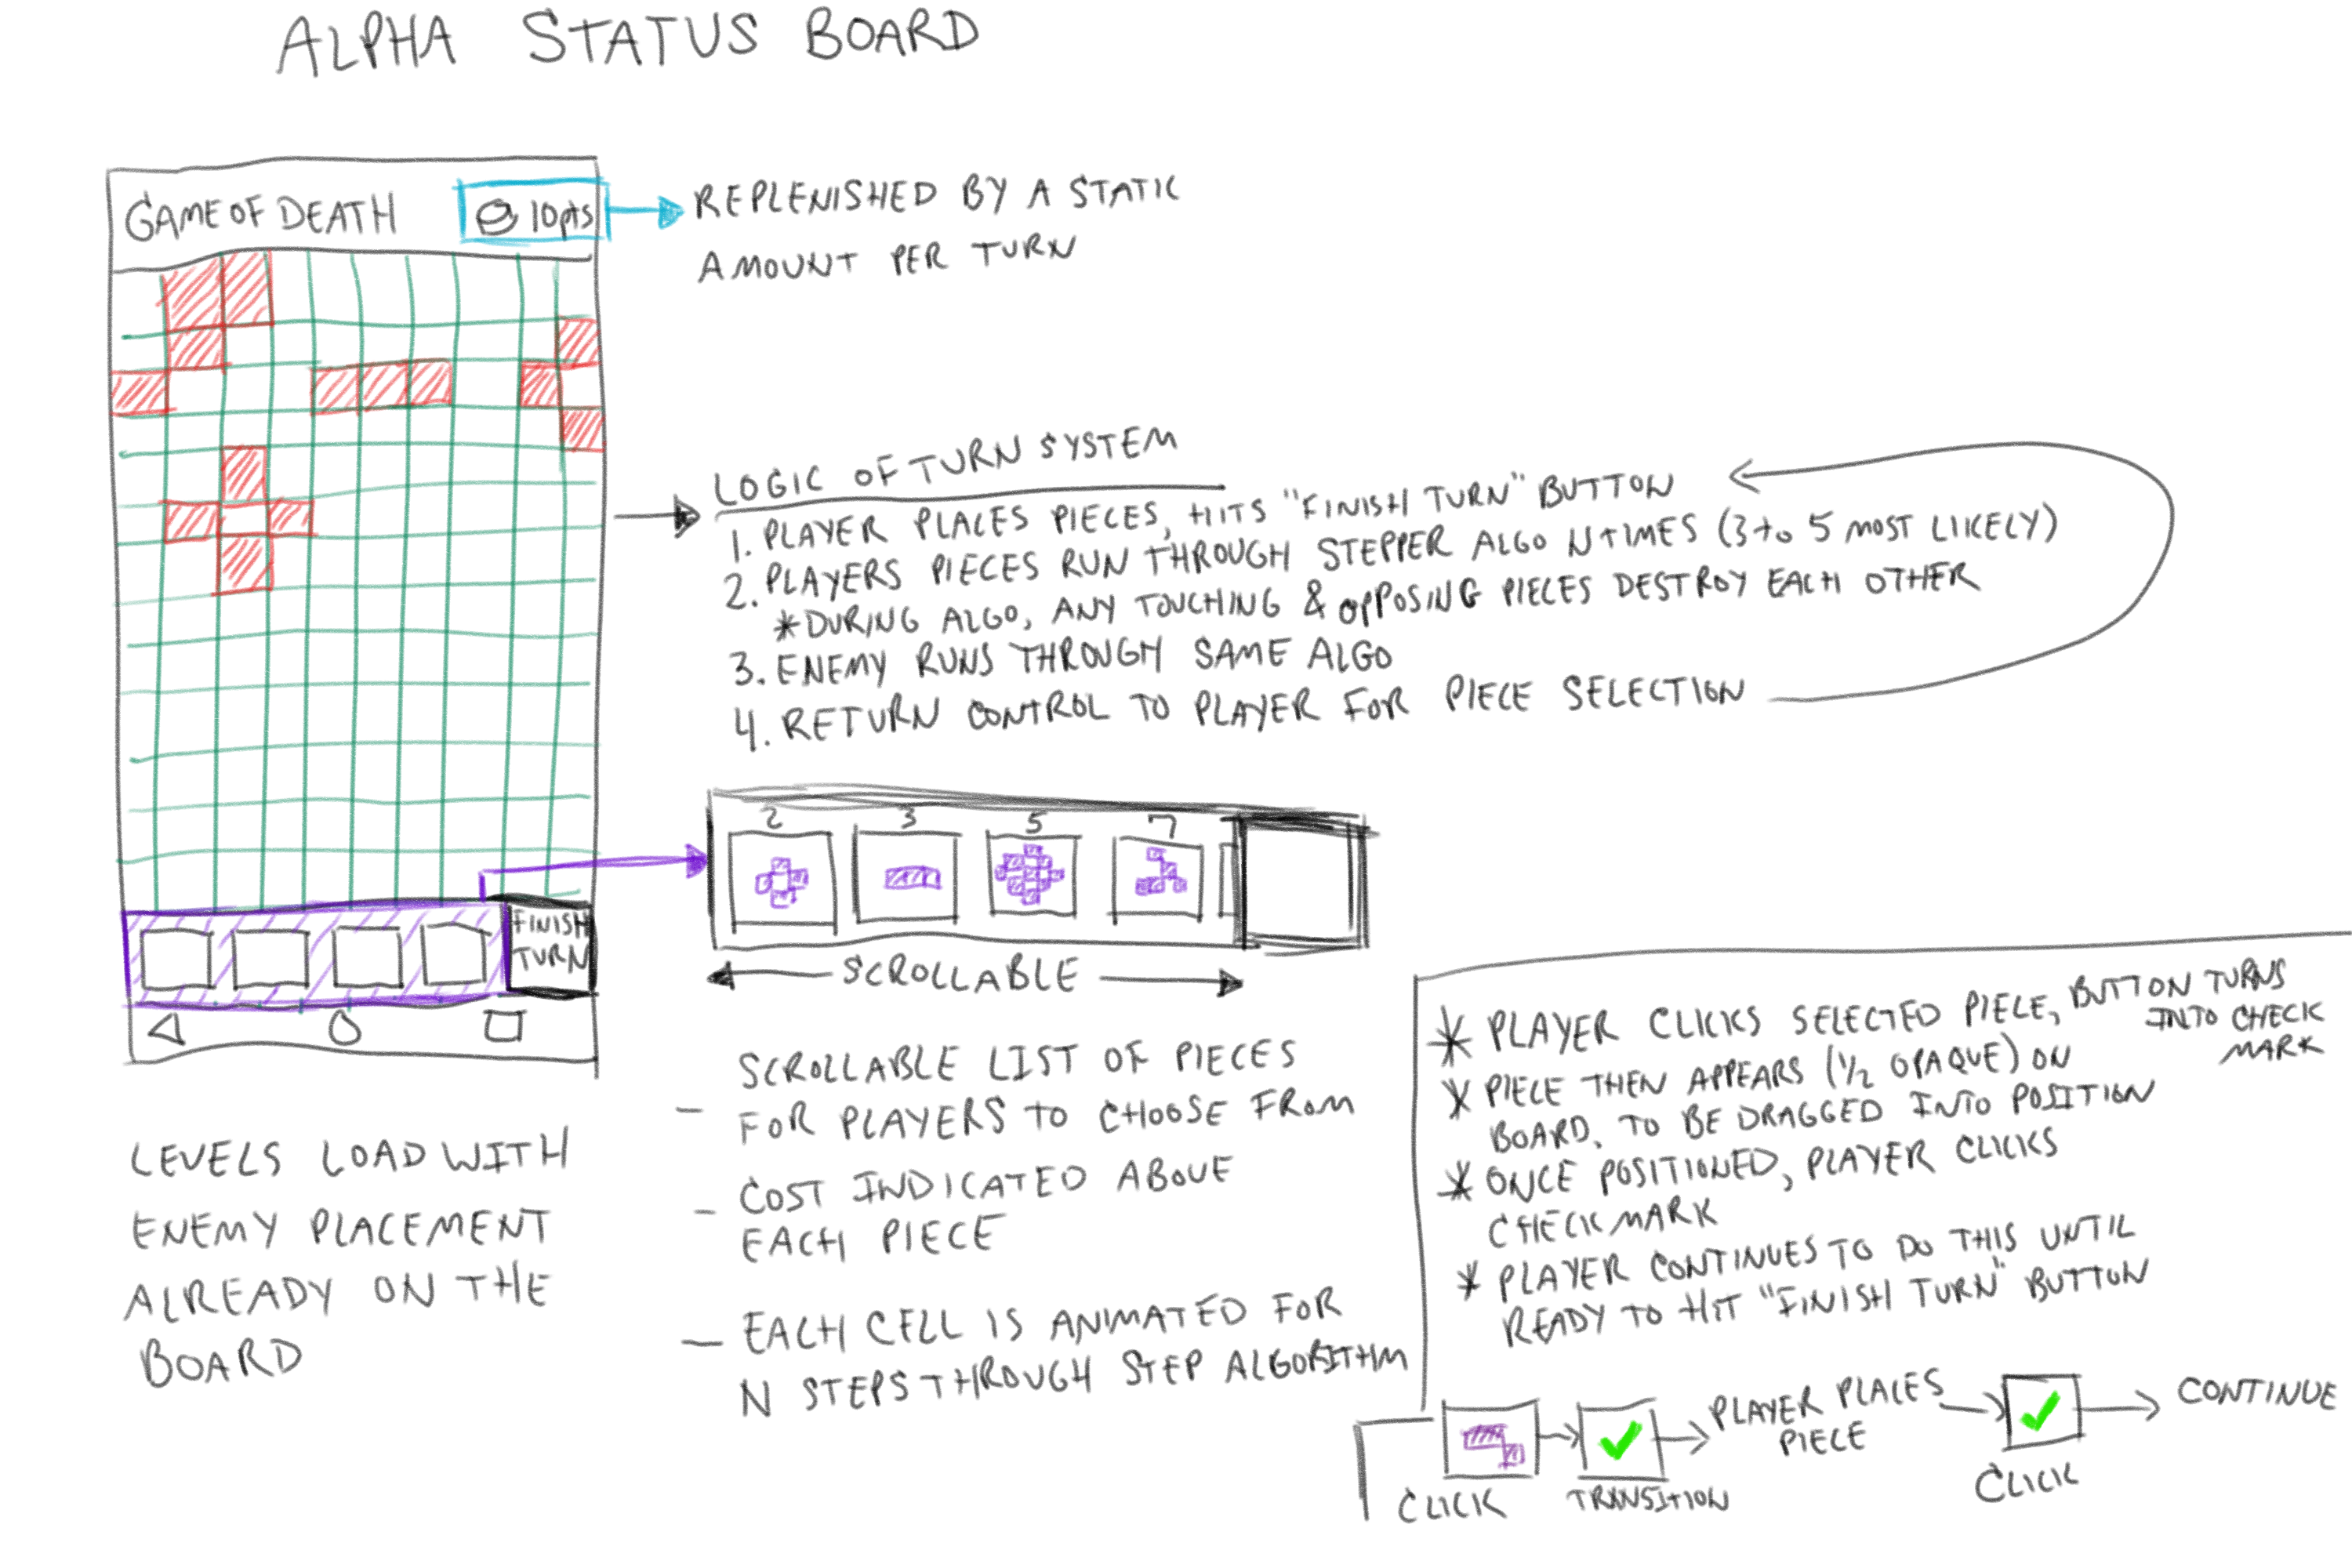 ALPHA STATUS BOARD
GAME OF DEATH
10pts
REPLENISHED BY A STATIC
AMOUNT PER TURN
LOGIC OF TURN SYSTEM
1. PLAYER PLACES PIECES, HITS "FINISH TURN" BUTTON
2. PLAYERS PIECES RUN THROUGH STEPPER ALGO N TIMES (3 to 5 MOST LIKELY)
*DURING ALGO, ANY TOUCHING & OPPOSING PIECES DESTROY EACH OTHER
3. ENEMY RUNS THROUGH SAME ALGO
4. RETURN CONTROL TO PLAYER FOR PIECE SELECTION
2 3 5 7
FINISH
TURN
SCROLLABLE
LEVELS LOAD WITH
ENEMY PLACEMENT
ALREADY ON THE
BOARD
- SCROLLABLE LIST OF PIECES
FOR PLAYERS TO CHOOSE FROM
- COST INDICATED ABOVE
EACH PIECE
- EACH CELL IS ANIMATED FOR
N STEPS THROUGH STEP ALGORITHM
* PLAYER CLICKS SELECTED PIECE, BUTTON TURNS
INTO CHECK
MARK
* PIECE THEN APPEARS (1/2 OPAQUE) ON
BOARD, TO BE DRAGGED INTO POSITION
* ONCE POSITIONED, PLAYER CLICKS
CHECKMARK
* PLAYER CONTINUES TO DO THIS UNTIL
READY TO HIT "FINISH TURN" BUTTON
CLICK
TRANSITION
PLAYER PLACES
PIECE
CLICK
CONTINUE